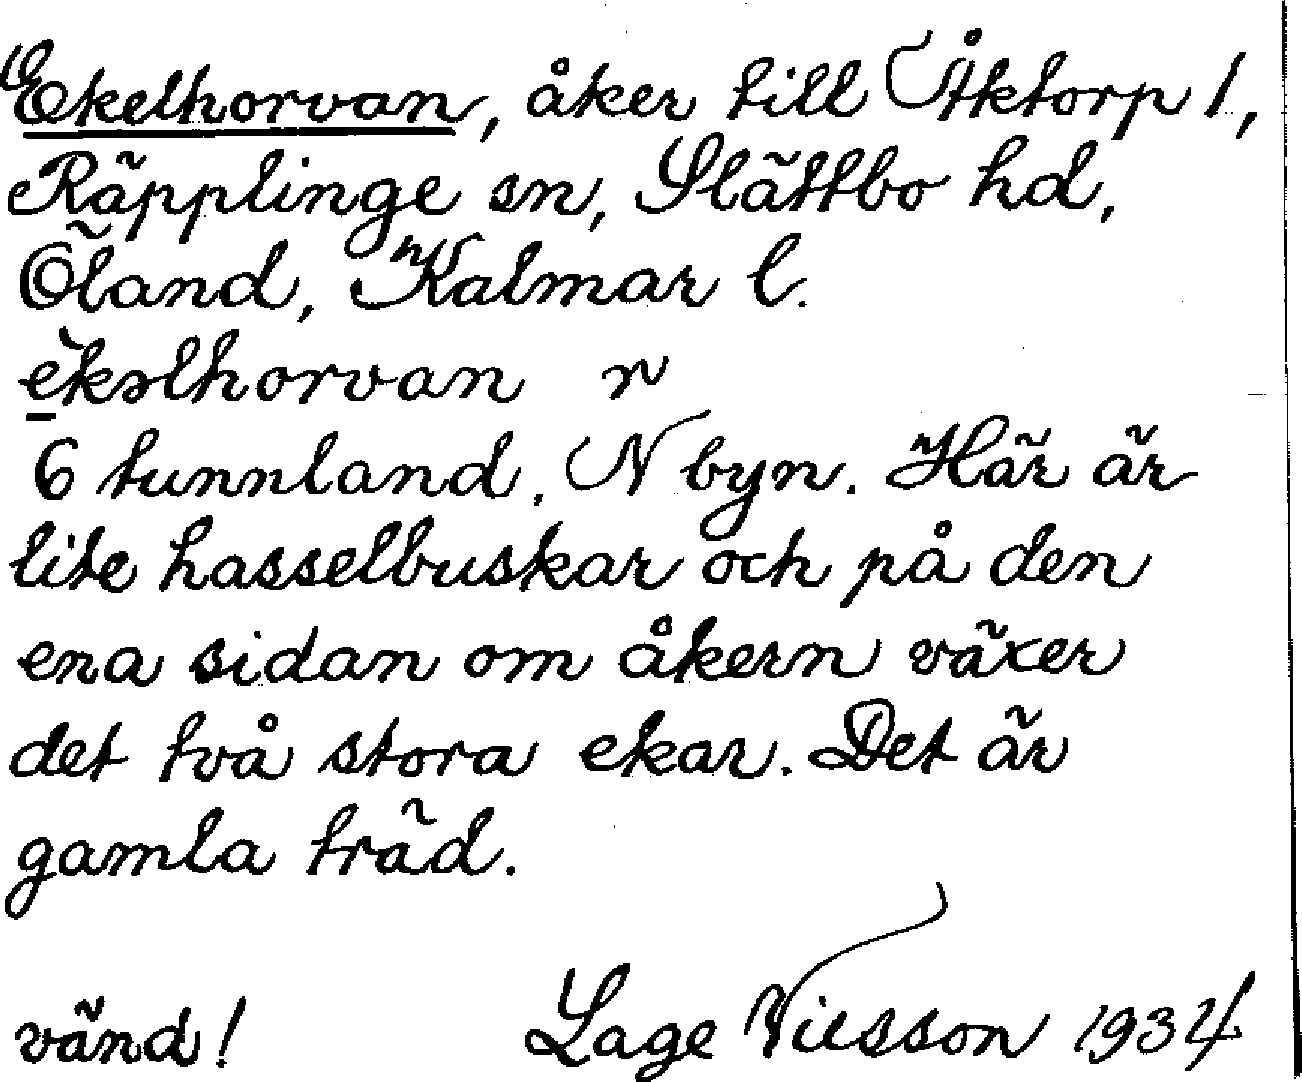 Ekelhorvan, åker till Åktorp 1,
Räpplinge sn, Slättbo hd,
Öland, Kalmar l.
èkəlhorvan r
6 tunnland, N byn. Här är
lite hasselbuskar och på den
ena sidan om åkern växer
det två stora ekar. Det är
gamla träd.
vänd! Lage Nilsson 1934